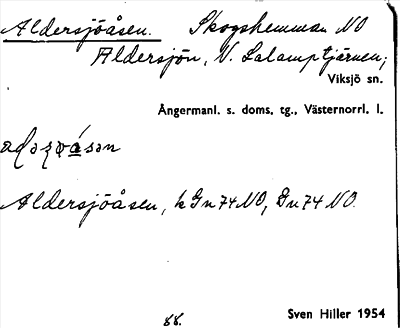 Aldersjöåsen. Skogshemman NO
Aldersjön, V. Lalamptjärnen,
Viksjö sn.
Ångermanl. s. doms. tg., Västernorrl. l.
Aldersjöåsen, k Gn 74 NO, Gn 74 NO.
88. Sven Hiller 1954